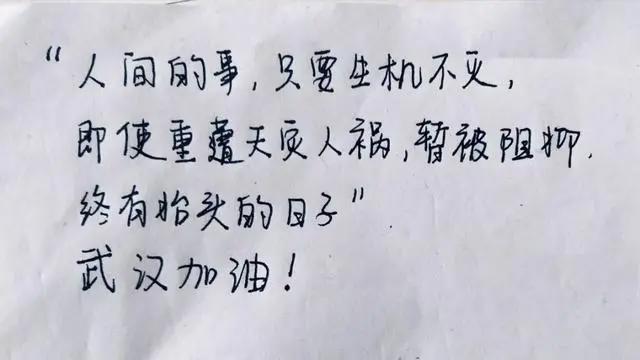 “人间的事，只要生机不灭，
即使重遭天灾人祸，暂被阻抑，
终有抬头的日子”
武汉加油！